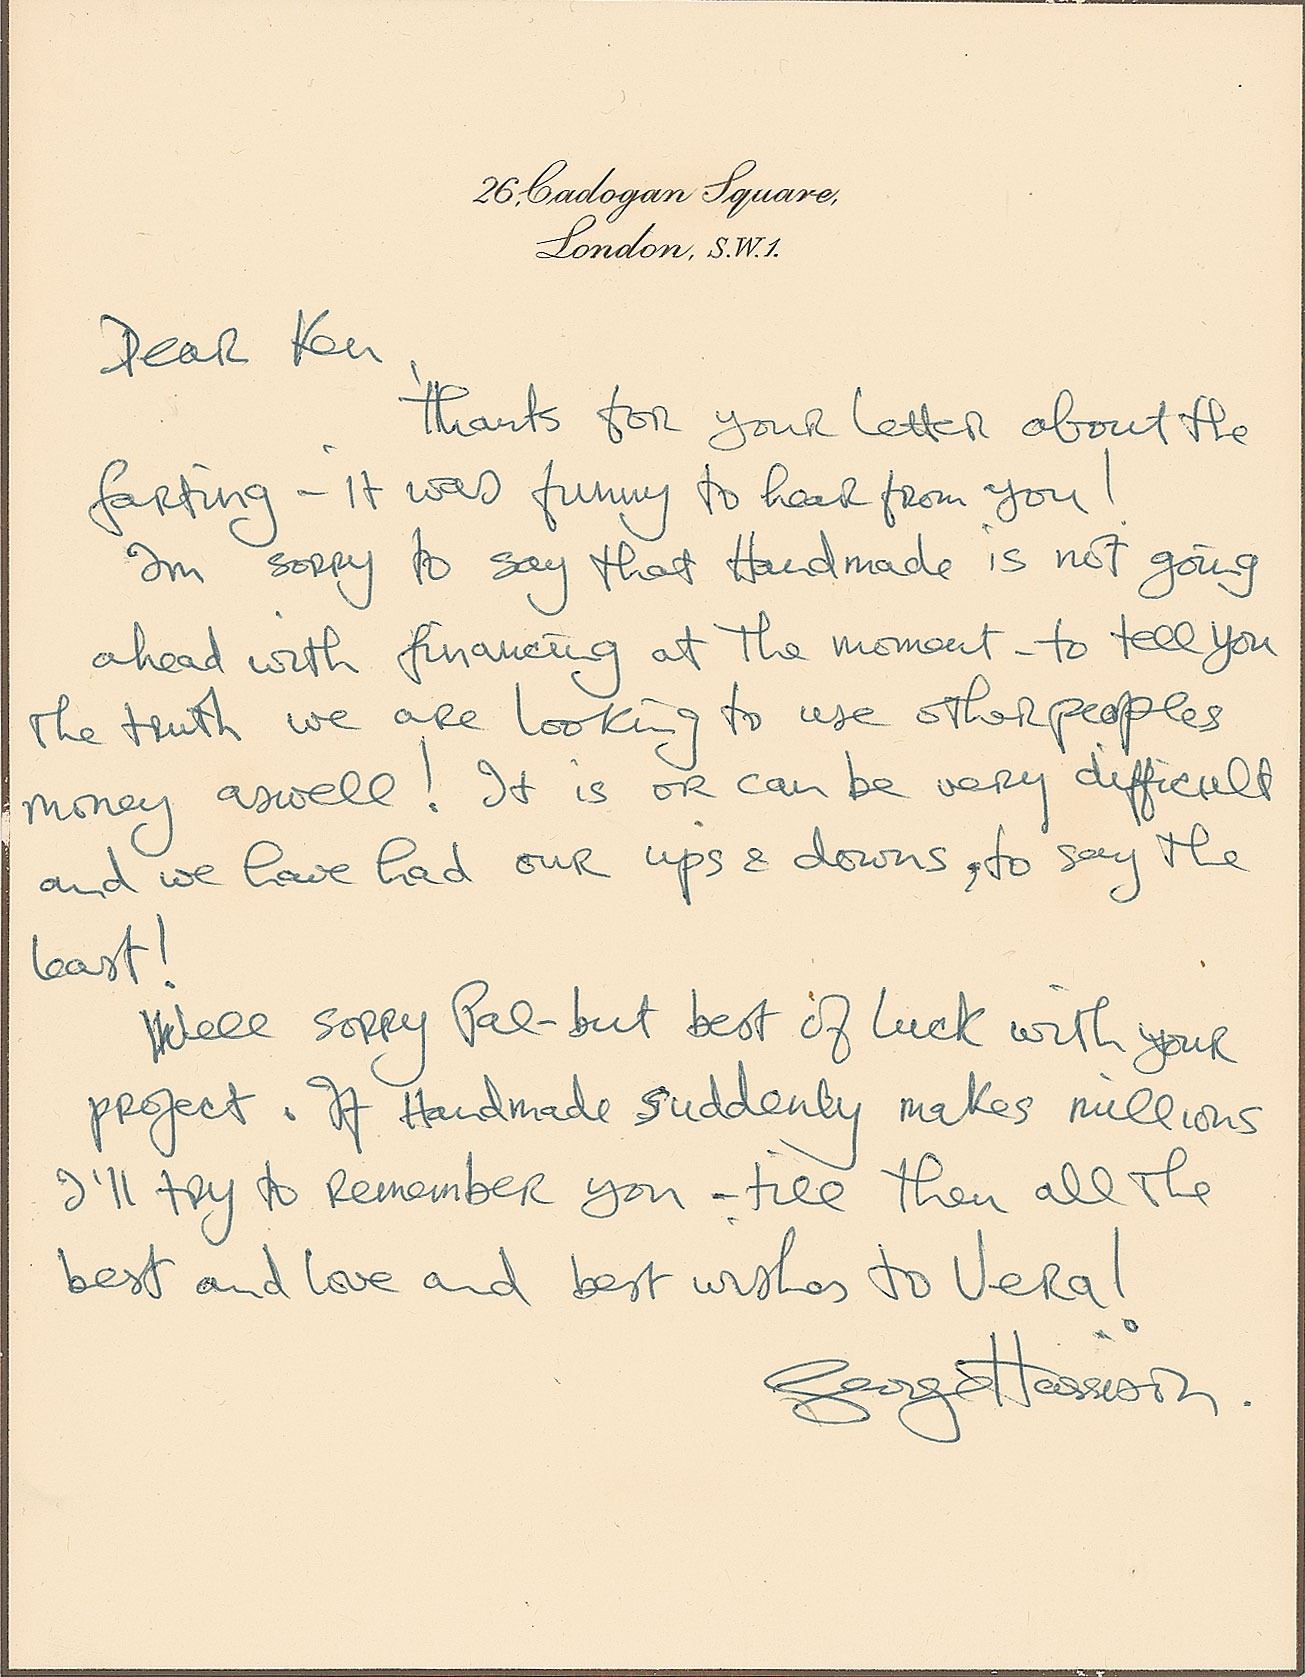 26, Cadogan Square,
London, S.W.1.
Dear Ken,
Thanks for your letter about the
farting - it was funny to hear from you!
Im sorry to say that Handmade is not going
ahead with financing at the moment - to tell you
the truth we are looking to use other peoples
money aswell! It is or can be very difficult
and we have had our ups & downs, to say the
least!
Well sorry Pal - but best of luck with your
project. If Handmade suddenly makes millions
I'll try to remember you - till then all the
best and love and best wishes to Vera!
George Harrison.